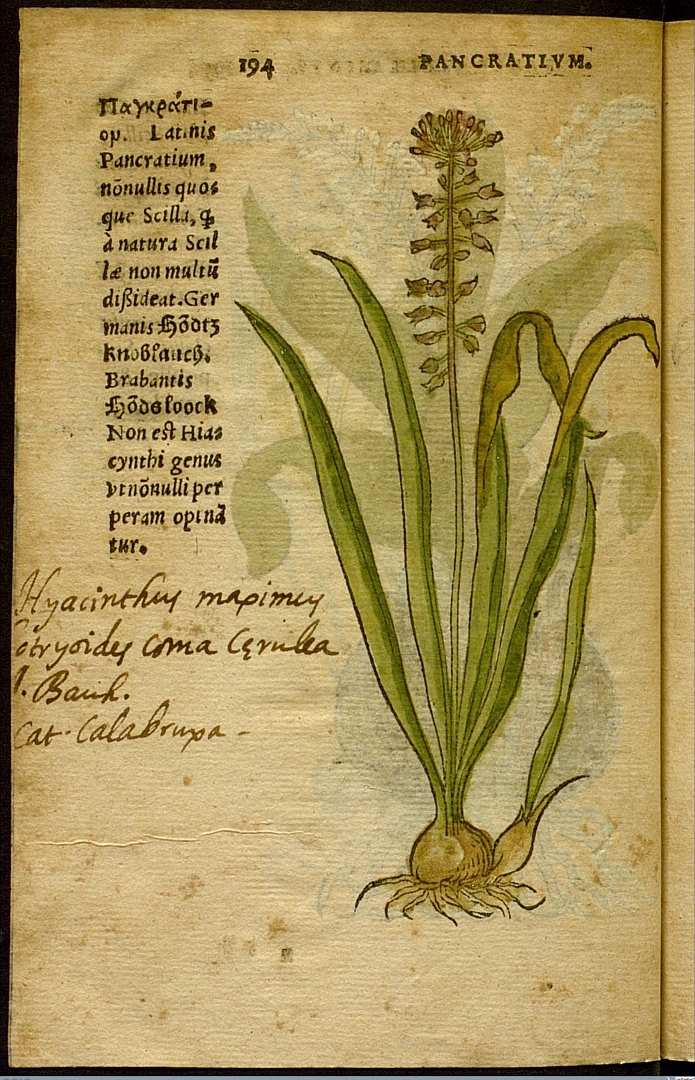 194 PANCRATIVM.
Παγκράτι-
ον. Latinis
Pancratium,
nõnullis quos
que Scilla, ꝗ
à natura Scil
læ non multũ
dißideat. Ger
manis Hõdtz
knoblauch.
Brabantis
Hõdsloock
Non est Hias
cynthi genus
vt nõnulli per
peram opinã
tur.
Hyacinthus maximus
otryoides coma Cęrulea
J. Bauh.
Cat. Calabruxa -